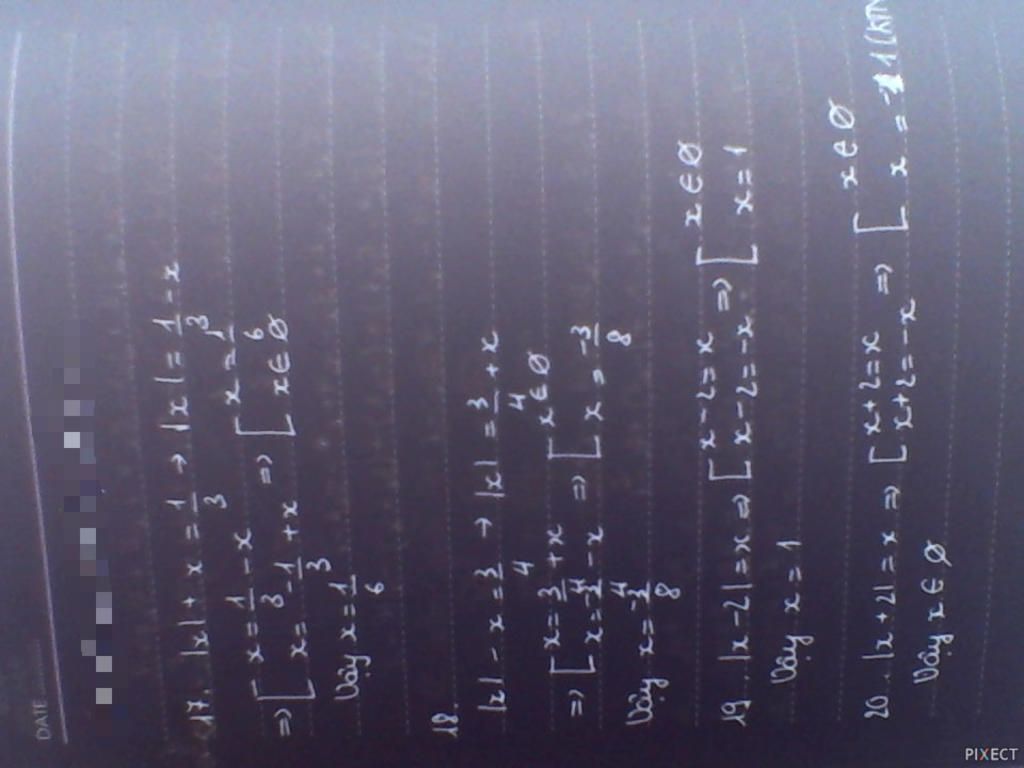 DATE
17. |x| + x = 1/3 → |x| = 1/3 - x
=> [ x = 1/3 - x
x = -1/3 + x => [ x = 1/6
x ∈ Ø
Vậy x = 1/6
18.
|x| - x = 3/4 → |x| = 3/4 + x
=> [ x = 3/4 + x
x = -3/4 - x => [ x ∈ Ø
x = -3/8
Vậy x = -3/8
19. |x - 2| = x => [ x - 2 = x
x - 2 = -x => [ x ∈ Ø
x = 1
Vậy x = 1
20. |x + 2| = x => [ x + 2 = x
x + 2 = -x => [ x ∈ Ø
x = -1 (KTM
Vậy x ∈ Ø
PIXECT